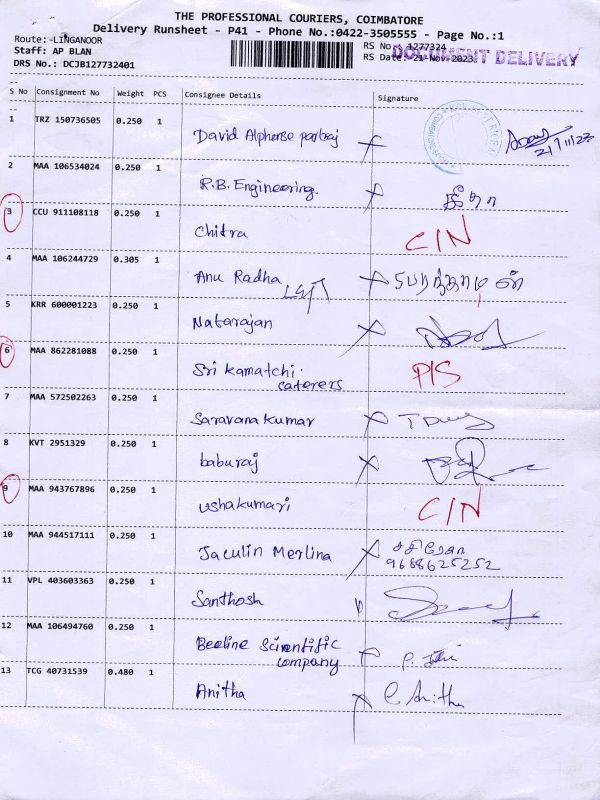 THE PROFESSIONAL COURIERS, COIMBATORE
Delivery Runsheet - P41 - Phone No.:0422-3505555 - Page No.:1
Route: LINGANOOR
Staff: AP BLAN
DRS No.: DCJB127732401
RS No : 1277324
RS Date: 21-Nov-2023
DOCUMENT DELIVERY
S No Consignment No Weight PCS Consignee Details Signature
1 TRZ 150736505 0.250 1
David Alphonse 21/11/23
2 MAA 106534024 0.250 1
R.B. Engineering. கீதா
3 CCU 911108118 0.250 1
Chitra C/N
4 MAA 106244729 0.305 1
Anu Radha
5 KRR 600001223 0.250 1
Natarajan
6 MAA 862281088 0.250 1
Sri Kamatchi P/S
caterers
7 MAA 572502263 0.250 1
Saravana kumar
8 KVT 2951329 0.250 1
baburaj
9 MAA 943767896 0.250 1
ushakumari C/N
10 MAA 944517111 0.250 1
Jaculin Merlina
9688625252
11 VPL 403603363 0.250 1
Santhosh
12 MAA 106494760 0.250 1
Beeline Scientific
company
13 TCG 40731539 0.480 1
Anitha Anitha